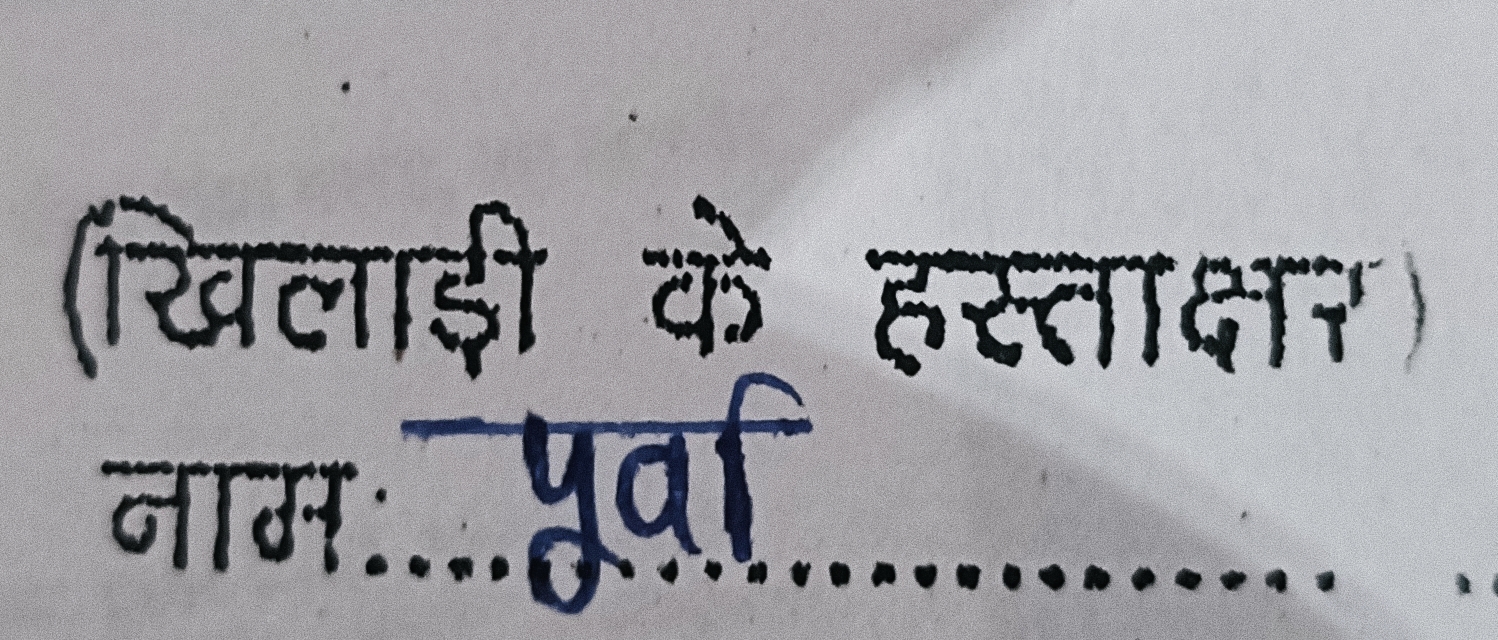 (खिलाडी के हस्ताक्षर)
नाम. पूर्वा